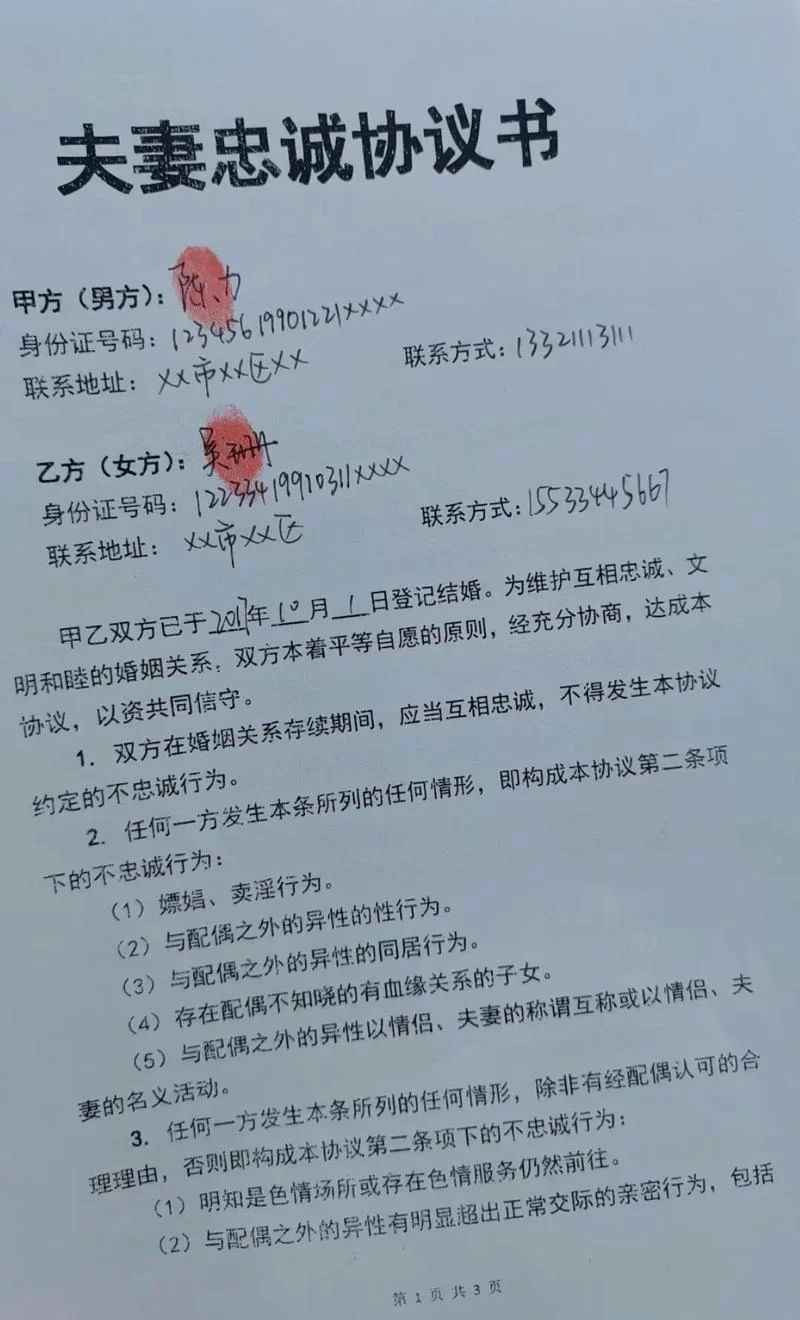 夫妻忠诚协议书
甲方（男方）：陈力
身份证号码：12345619901221××××
联系地址：××市××区××
联系方式：13321113111
乙方（女方）：吴珊
身份证号码：12233419910311××××
联系地址：××市××区
联系方式：15533445667
甲乙双方已于2017年10月1日登记结婚。为维护互相忠诚、文
明和睦的婚姻关系，双方本着平等自愿的原则，经充分协商，达成本
协议，以资共同信守。
1. 双方在婚姻关系存续期间，应当互相忠诚，不得发生本协议
约定的不忠诚行为。
2. 任何一方发生本条所列的任何情形，即构成本协议第二条项
下的不忠诚行为：
（1）嫖娼、卖淫行为。
（2）与配偶之外的异性的性行为。
（3）与配偶之外的异性的同居行为。
（4）存在配偶不知晓的有血缘关系的子女。
（5）与配偶之外的异性以情侣、夫妻的称谓互称或以情侣、夫
妻的名义活动。
3. 任何一方发生本条所列的任何情形，除非有经配偶认可的合
理理由，否则即构成本协议第二条项下的不忠诚行为：
（1）明知是色情场所或存在色情服务仍然前往。
（2）与配偶之外的异性有明显超出正常交际的亲密行为，包括
第 1 页 共 3 页